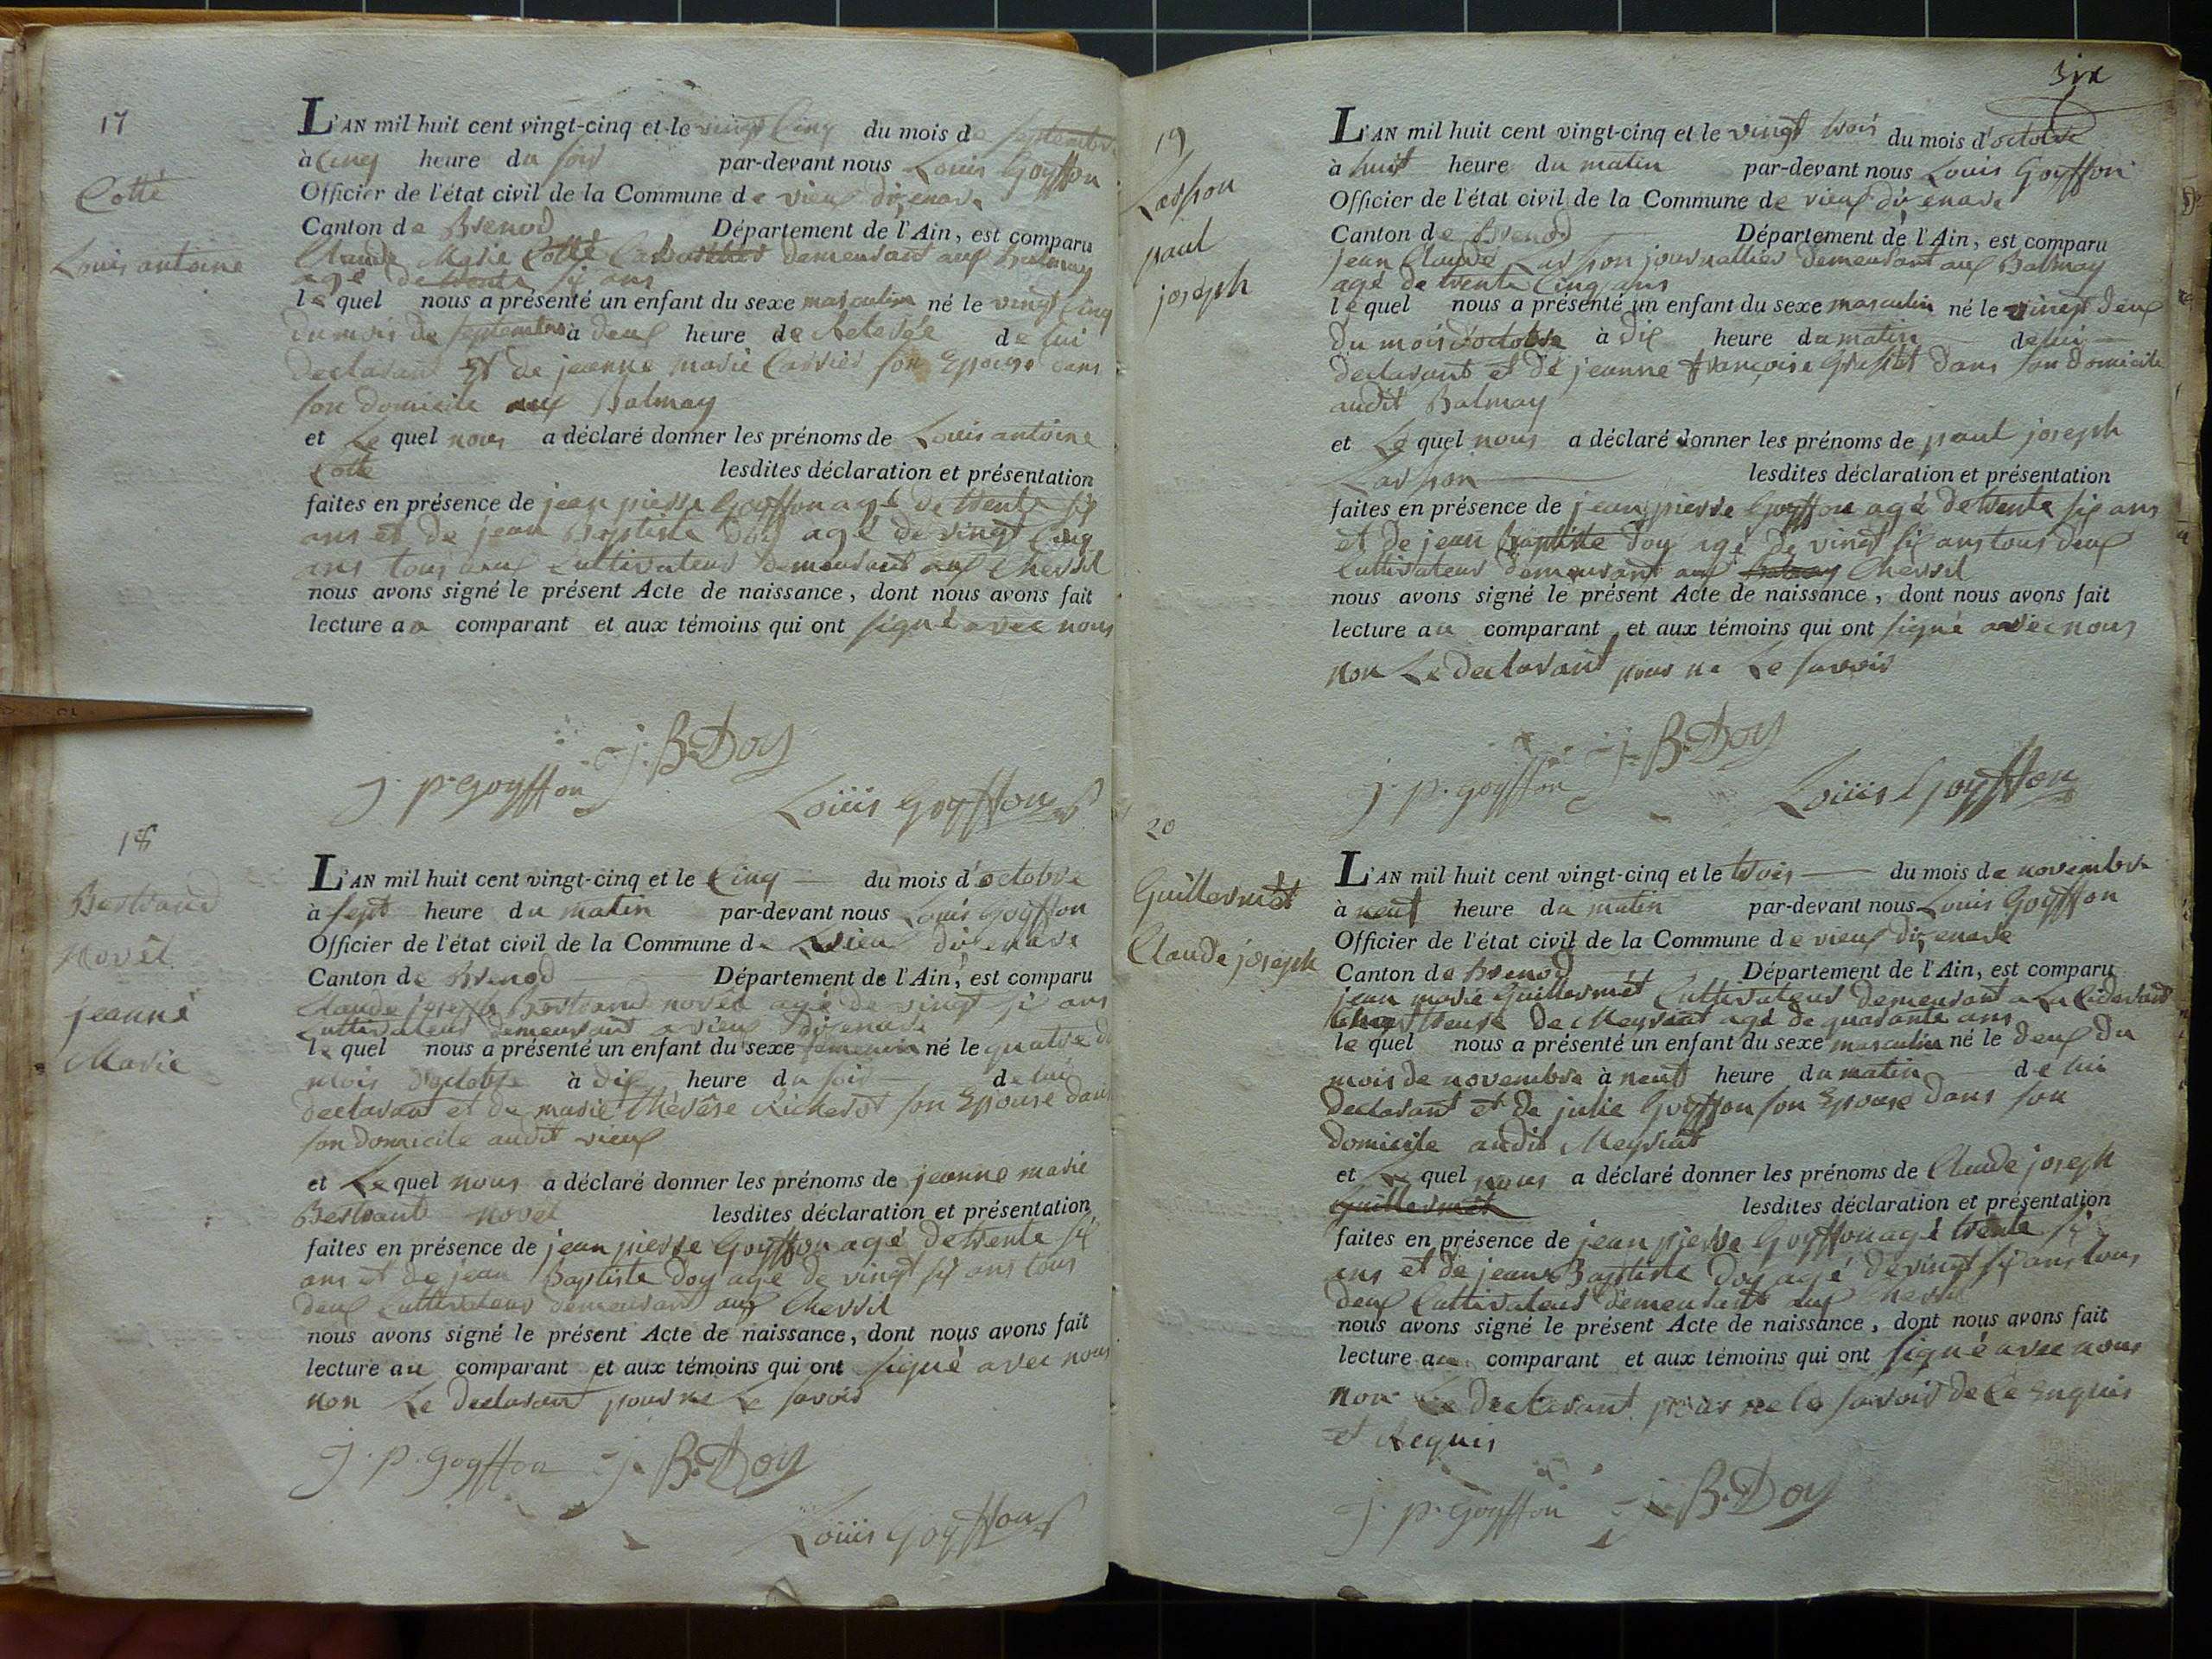 17
Cotté
Louis antoine
L'AN mil huit cent vingt-cinq et le vingt Cinq du mois de septembre
à Cinq heure du soir par-devant nous Louis Goyffon
Officier de l'état civil de la Commune de vieux disenave
Canton de Brenod Département de l'Ain, est comparu
Claude Marie Cotté demeurant aux Balmay
agé de trente six ans
le quel nous a présenté un enfant du sexe masculin né le vingt Cinq
du mois de septembre à deux heure de de lui
declarant Et de jeanne marie Carrier son Epouse dans
son domicile aux Balmay
et Le quel nous a déclaré donner les prénoms de Louis antoine
Cotté lesdites déclaration et présentation
faites en présence de jean pierre Goyffon agé de trente six
ans et de jean Baptiste Doy agé de vingt Cinq
ans tous deux Cultivateur demeurant aux Cherril
nous avons signé le présent Acte de naissance, dont nous avons fait
lecture au comparant et aux témoins qui ont signé avec nous
j. p. Goyffon j. B. Doy
Loüis Goyffon
18
Bertrand
Novêl
jeanne
Marie
L'AN mil huit cent vingt-cinq et le Cinq du mois d'octobre
à sept heure du matin par-devant nous Louis Goyffon
Officier de l'état civil de la Commune de vieux disenave
Canton de Brenod Département de l'Ain, est comparu
Claude joseph Bertrand novel agé de vingt six ans
Cultivateur demeurant a vieux disenave
le quel nous a présenté un enfant du sexe femenin né le quatre du
mois d'octobre à dix heure du soir de lui
declarant et de marie thérêse Richerot son Epouse dans
son domicile audit vieux
et Le quel nous a déclaré donner les prénoms de jeanne marie
Bertrant novel lesdites déclaration et présentation
faites en présence de jean pierre Goyffon agé de trente six
ans et de jean Baptiste Doy agé de vingt six ans tous
deux Cultivateur demeurant aux Cherril
nous avons signé le présent Acte de naissance, dont nous avons fait
lecture au comparant et aux témoins qui ont signé avec nous
non Le declarant pour ne Le savoir
J. P. Goyffon j. B. Doy
Loüis Goyffon
six
19
Larson
paul
joseph
L'AN mil huit cent vingt-cinq et le vingt trois du mois d'octobre
à huit heure du matin par-devant nous Louis Goyffon
Officier de l'état civil de la Commune de vieux disenave
Canton de Brenod Département de l'Ain, est comparu
jean Claude Larson journallier demeurant aux Balmay
agé de trente Cinq ans
le quel nous a présenté un enfant du sexe masculin né le vingt deux
du mois d'octobre à dix heure du matin de lui
declarant et de jeanne françoise dans son domicile
audit Balmay
et Le quel nous a déclaré donner les prénoms de paul joseph
Larson lesdites déclaration et présentation
faites en présence de jean pierre Goyffon agé de trente six ans
et de jean Baptiste Doy agé de vingt six ans tous deux
Cultivateur demeurant aux Balmay Cherril
nous avons signé le présent Acte de naissance, dont nous avons fait
lecture au comparant et aux témoins qui ont signé avec nous
non Le declarant pour ne Le savoir
j. p. goyffon j. B. Doy
Loüis Goyffon
20
Guillermet
Claude joseph
L'AN mil huit cent vingt-cinq et le trois du mois de novembre
à neuf heure du matin par-devant nous Louis Goyffon
Officier de l'état civil de la Commune de vieux disenave
Canton de Brenod Département de l'Ain, est comparu
jean marie Guillermét Cultivateur demeurant a La Cidevant
Chartreuse de Meyriat agé de quarante ans
le quel nous a présenté un enfant du sexe masculin né le deux du
mois de novembre à neuf heure du matin de lui
declarant et de julie Goyffon son Epouse dans son
domicile audit Meyriat
et Le quel nous a déclaré donner les prénoms de Claude joseph
Guillermét lesdites déclaration et présentation
faites en présence de jean pierre Goyffon agé trente six
ans et de jean Baptiste Doy agé de vingt six ans tous
deux Cultivateur demeurant aux Cherril
nous avons signé le présent Acte de naissance, dont nous avons fait
lecture au comparant et aux témoins qui ont signé avec nous
non Le declarant pour ne le savoir de Ce Enquis
et Requis
j. p. goyffon j. B. Doy